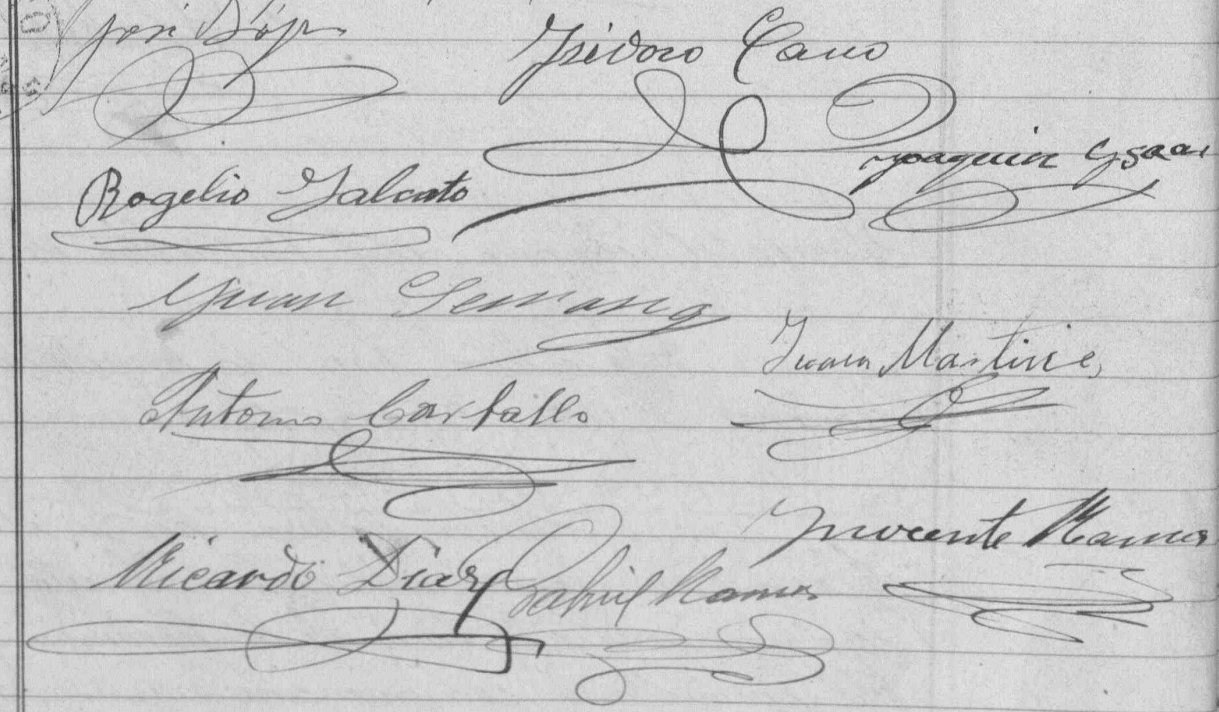 José López
Isidoro Cano
Joaquin Ysaac
Rogelio Galcato
Juan Serrano
Juan Martine
Antonio Carballo
Inocente Ramos
Ricardo Diaz
Gabriel Ramos